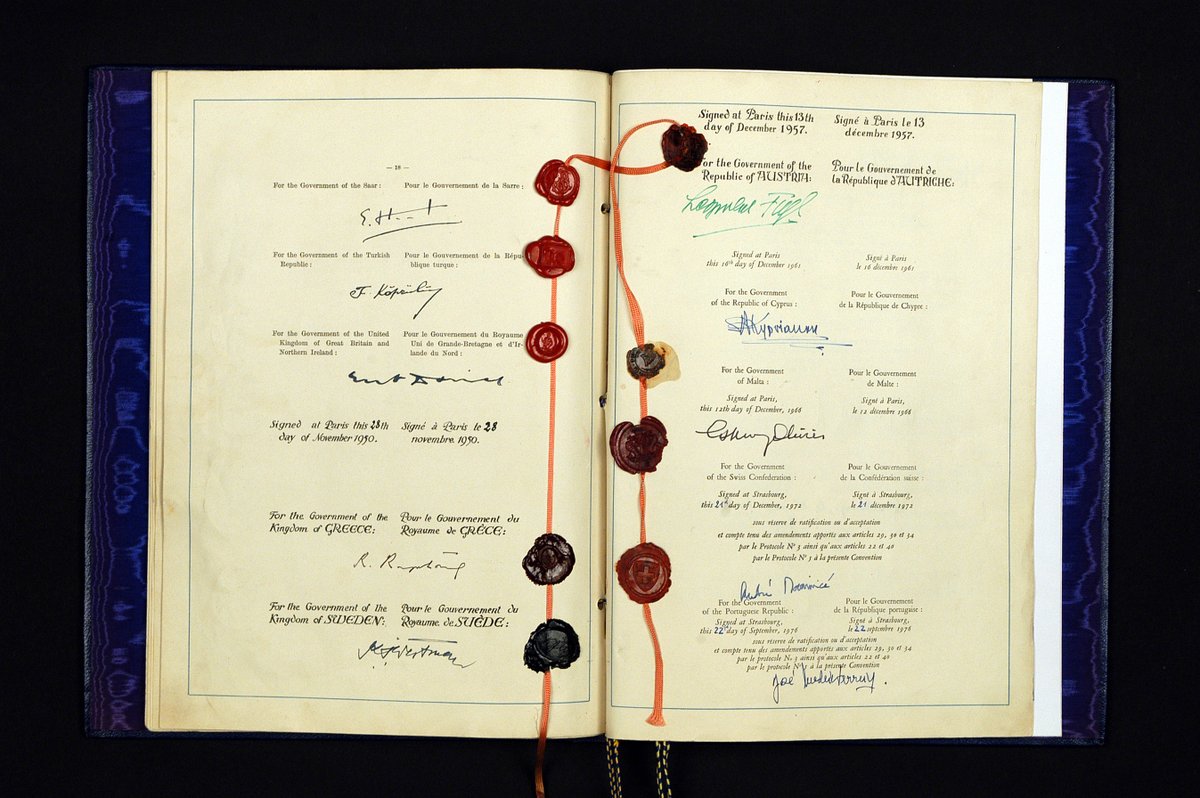 — 18 —
For the Government of the Saar :
Pour le Gouvernement de la Sarre :
For the Government of the Turkish
Republic :
Pour le Gouvernement de la Répu-
blique turque :
F. Köprülü
For the Government of the United
Kingdom of Great Britain and
Northern Ireland :
Pour le Gouvernement du Royaume
Uni de Grande-Bretagne et d'Ir-
lande du Nord :
Signed at Paris this 28th
day of November 1950.
Signé à Paris le 28
novembre 1950.
For the Government of the
Kingdom of GREECE:
Pour le Gouvernement du
Royaume de GRÈCE:
For the Government of the
Kingdom of SWEDEN:
Pour le Gouvernement du
Royaume de SUÈDE:
Signed at Paris this 13th
day of December 1957.
Signé à Paris le 13
décembre 1957.
For the Government of the
Republic of AUSTRIA:
Pour le Gouvernement de
la République d'AUTRICHE:
Leopold Figl
Signed at Paris
this 16th day of December 1961
Signé à Paris
le 16 décembre 1961
For the Government
of the Republic of Cyprus :
Pour le Gouvernement
de la République de Chypre :
Kyprianou
For the Government
of Malta :
Pour le Gouvernement
de Malte :
Signed at Paris,
this 12th day of December, 1966
Signé à Paris,
le 12 décembre 1966
For the Government
of the Swiss Confederation :
Pour le Gouvernement
de la Confédération suisse :
Signed at Strasbourg,
this 21st day of December, 1972
Signé à Strasbourg,
le 21 décembre 1972
sous réserve de ratification ou d'acceptation
et compte tenu des amendements apportés aux articles 29, 30 et 34
par le Protocole N° 3 ainsi qu'aux articles 22 et 40
par le Protocole N° 5 à la présente Convention
For the Government
of the Portuguese Republic :
Pour le Gouvernement
de la République portugaise :
Signed at Strasbourg,
this 22nd day of September, 1976
Signé à Strasbourg,
le 22 septembre 1976
sous réserve de ratification ou d'acceptation
et compte tenu des amendements apportés aux articles 29, 30 et 34
par le protocole N° 3 ainsi qu'aux articles 22 et 40
par le protocole N° 5 à la présente Convention